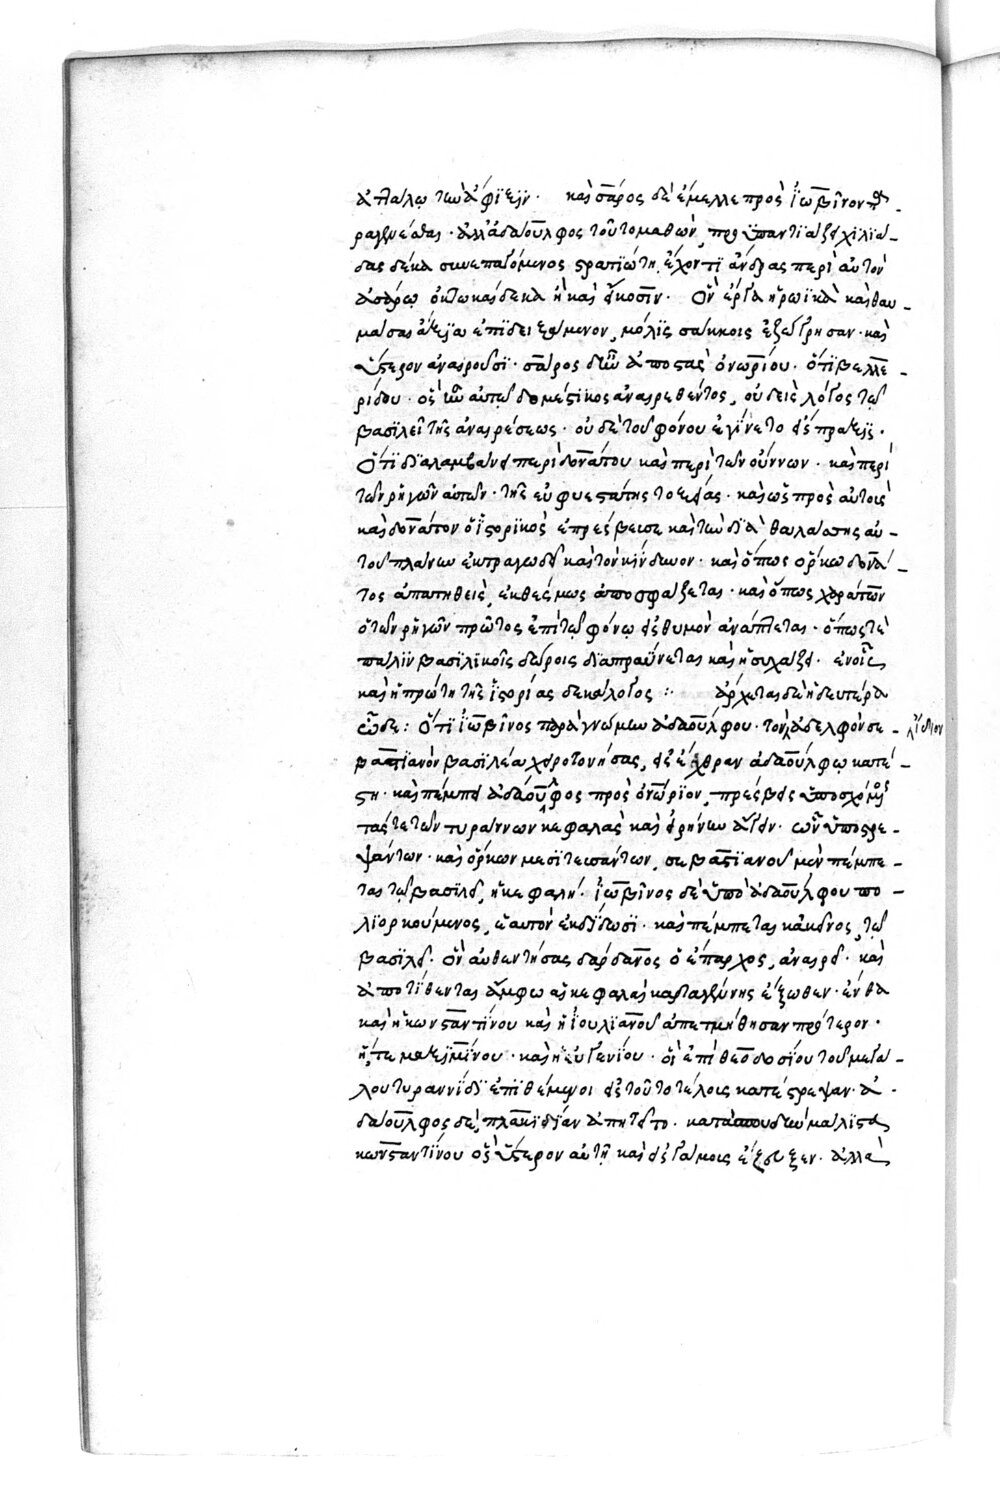 ἀτταλῳ τὼ ἄφιξιν. καὶ σάρος δὲ ἔμελλε πρὸς ἰωβῖνον πα
ραγενέσθαι. ἀλλ' ἀδαοῦλφος τοῦτο μαθὼν, προϋπαντιάζει χιλιά
δας δέκα συνεπαγόμενος στρατιώτη, ἔχοντι ἄνδρας περὶ αὐτὸν
ἀσάρῳ ὀκτωκαίδεκα ἢ καὶ εἴκοσιν. ὃν ἔργα ἡρωϊκὰ καὶ θαυ
μάσαι ἄξια ἐπιδειξάμενον, μόλις σάκκοις ἐξώγρησαν. καὶ
ὕστερον ἀναιροῦσι. σάρος δ' ἦν ἀποστὰς ὀνωρίου. ὅτι βελλε
ρίδου. ὃς ἦν αὐτῷ δομέστικος ἀναιρεθέντος, οὐδεὶς λόγος τῷ
βασιλεῖ τῆς ἀναιρέσεως. οὐδὲ τοῦ φόνου ἐγίνετο εἴσπραξις.
Ὅτι διαλαμβάνει περὶ δονάτου καὶ περὶ τῶν οὔννων. καὶ περὶ
τῶν ῥηγῶν αὐτῶν. τῆς εὐφυεστάτης τοξείας. καὶ ὡς πρὸς αὐτοὺς
καὶ δονάτον ὁ ἱστορικὸς ἐπρέσβευσε καὶ τὼ διὰ θαλάσσης αὐ
τοῦ πλάνω ἐκτραγωδεῖ καὶ τὸν κίνδυνον. καὶ ὅπως ὅρκω δονά
τος ἀπατηθεὶς, ἐκθέσμως ἀποσφάζεται. καὶ ὅπως χαράτων
ὁ τῶν ῥηγῶν πρῶτος ἐπὶ τῷ φόνῳ εἰς θυμὸν ἀνάπτεται. ὅπως τε
πάλιν βασιλικοῖς δώροις διαπραΰνεται καὶ ἡσυχάζει. ἐν οἷς
καὶ ἡ πρώτη τῆς ἱστορίας δεκάλογος :· ἄρχεται δὲ ἡ δευτέρα
ὧδε: Ὅτι ἰωβῖνος παρὰ γνώμων ἀδαούλφου. τὸν ἀδελφὸν σε
ἴδιον
βαστιανὸν βασιλέα χειροτονήσας, εἰς ἔχθραν ἀδαούλφῳ κατέ
στη. καὶ πέμπει ἀδάουλφος πρὸς ὀνώριον, πρέσβεις ὑποσχόμενος
τάς τε τῶν τυράννων κεφαλὰς καὶ εἰρήνω ἄγειν. ὧν ὑποστρε
ψάντων. καὶ ὅρκων μεσιτευσάντων, σεβαστιανοῦ μὲν πέμπε
ται τῷ βασιλεῖ, ἡ κεφαλή. ἰωβῖνος δὲ ὑπὸ ἀδαούλφου πο
λιορκούμενος, ἑαυτὸν ἐκδίδωσι. καὶ πέμπεται κἀκεῖνος, τῷ
βασιλεῖ. ὃν αὐθεντήσας δάρδανος ὁ ἔπαρχος, ἀναιρεῖ. καὶ
ἀποτίθενται ἄμφω αἱ κεφαλαὶ καρταγένης ἔξωθεν. ἔνθα
καὶ ἡ κωνσταντίνου καὶ ἡ ἰουλιανοῦ ἀπετμήθησαν πρότερον.
ἥ, τε μαξιμίνου. καὶ ἡ εὐγενίου. οἳ ἐπὶ θεοδοσίου τοῦ μεγά
λου τυραννίδι ἐπιθέμενοι εἰς τοῦτο τέλους κατέστρεψαν. ἀ
δάουλφος δὲ, πλακιδίαν ἀπῃτεῖτο. κατὰ σπουδὼ μάλιστα
κωνσταντίνου ὃς ὕστερον αὐτῇ καὶ εἰς γάμους ἔζευξεν. ἀλλὰ